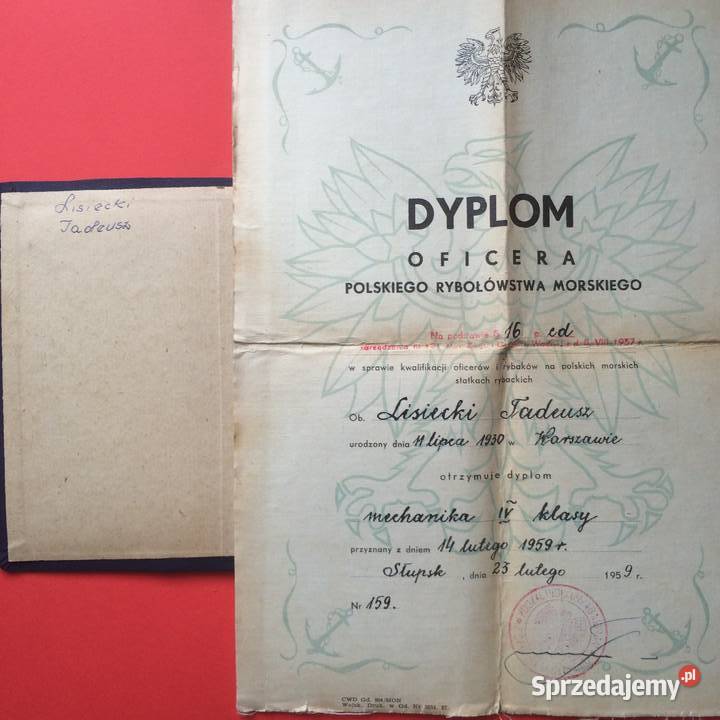 Lisiecki
Tadeusz
DYPLOM
OFICERA
POLSKIEGO RYBOŁÓWSTWA MORSKIEGO
Na podstawie § 16 p. cd
VIII. 1957 r.
w sprawie kwalifikacji oficerów i rybaków na polskich morskich
statkach rybackich
Ob. Lisiecki Tadeusz
urodzony dnia 11 lipca 1930 w Warszawie
otrzymuje dyplom
mechanika IV klasy
przyznany z dniem 14 lutego 1959 r.
Słupsk, dnia 23 lutego 1959 r.
Nr 159.
CWD Gd.
Wojsk. Druk. w Gd. Nr
Sprzedajemy.pl